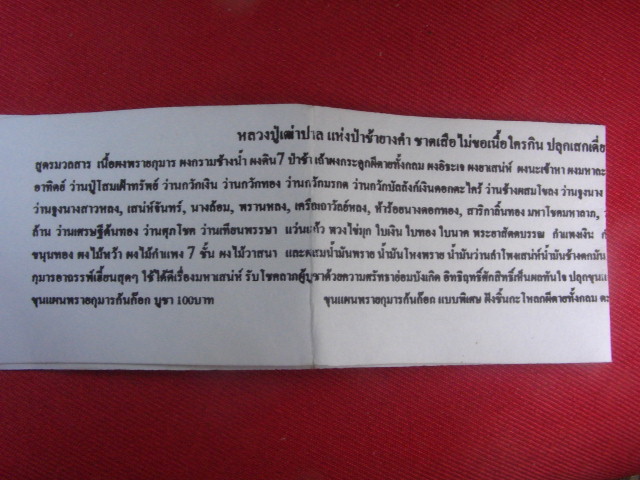 หลวงปู่เฒ่าปาล แห่งป่าช้ายางคำ ชาดเสือไม่ขอเนื้อใครกิน ปลุกเสกเดี่
สูตรมวลสาร เนื้อผงพรายกุมาร ผงกรามช้างน้ำ ผงดิน 7 ป่าช้า เถ้าผงกระดูกผีตายทั้งกลม ผงอิธะเจ ผงยาเสน่ห์ ผงนะเข้าหา ผงมหาละ
อาทิตย์ ว่านปู่โสมเฝ้าทรัพย์ ว่านกวักเงิน ว่านกวักทอง ว่านกวักมรกต ว่านกวักบัลลังก์เงินดอกตะไคร้ ว่านช้างผสมโขลง ว่านจูงนาง
ว่านจูงนางสาวหลง, เสน่ห์จันทร์, นางล้อม, พรานหลง, เครือเถาวัลย์หลง, หัวร้อยนางดอกทอง, สาริกาลิ้นทอง มหาโชคมหาลาภ,
ล้าน ว่านเศรษฐีต้นทอง ว่านศุภโชค ว่านเทียนพรรษา แว่นแก้ว พวงไข่มุก ใบเงิน ใบทอง ใบนาค พระยาสัตตบรรณ กำแพงเงิน
ขนุนทอง ผงไม้หว้า ผงไม้กำแพง 7 ชั้น ผงไม้วาสนา และผสมน้ำมันพราย น้ำมันโหงพราย น้ำมันว่านสำโพงเสน่ห์น้ำมันช้างตกมัน
กุมารอาถรรพ์เฮี้ยนสุดๆ ใช้ได้ดีเรื่องมหาเสน่ห์ รับโชคลาภผู้บูชาด้วยความศรัทธาย่อมบังเกิด อิทธิฤทธิ์ศักดิ์สิทธิ์เห็นผลทันใจ ปลุกขุนแ
ขุนแผนพรายกุมารก้นก๊อก บูชา 100บาท ขุนแผนพรายกุมารก้นก๊อก แบบพิเศษ ฝังชิ้นกะโหลกผีตายทั้งกลม ตะ